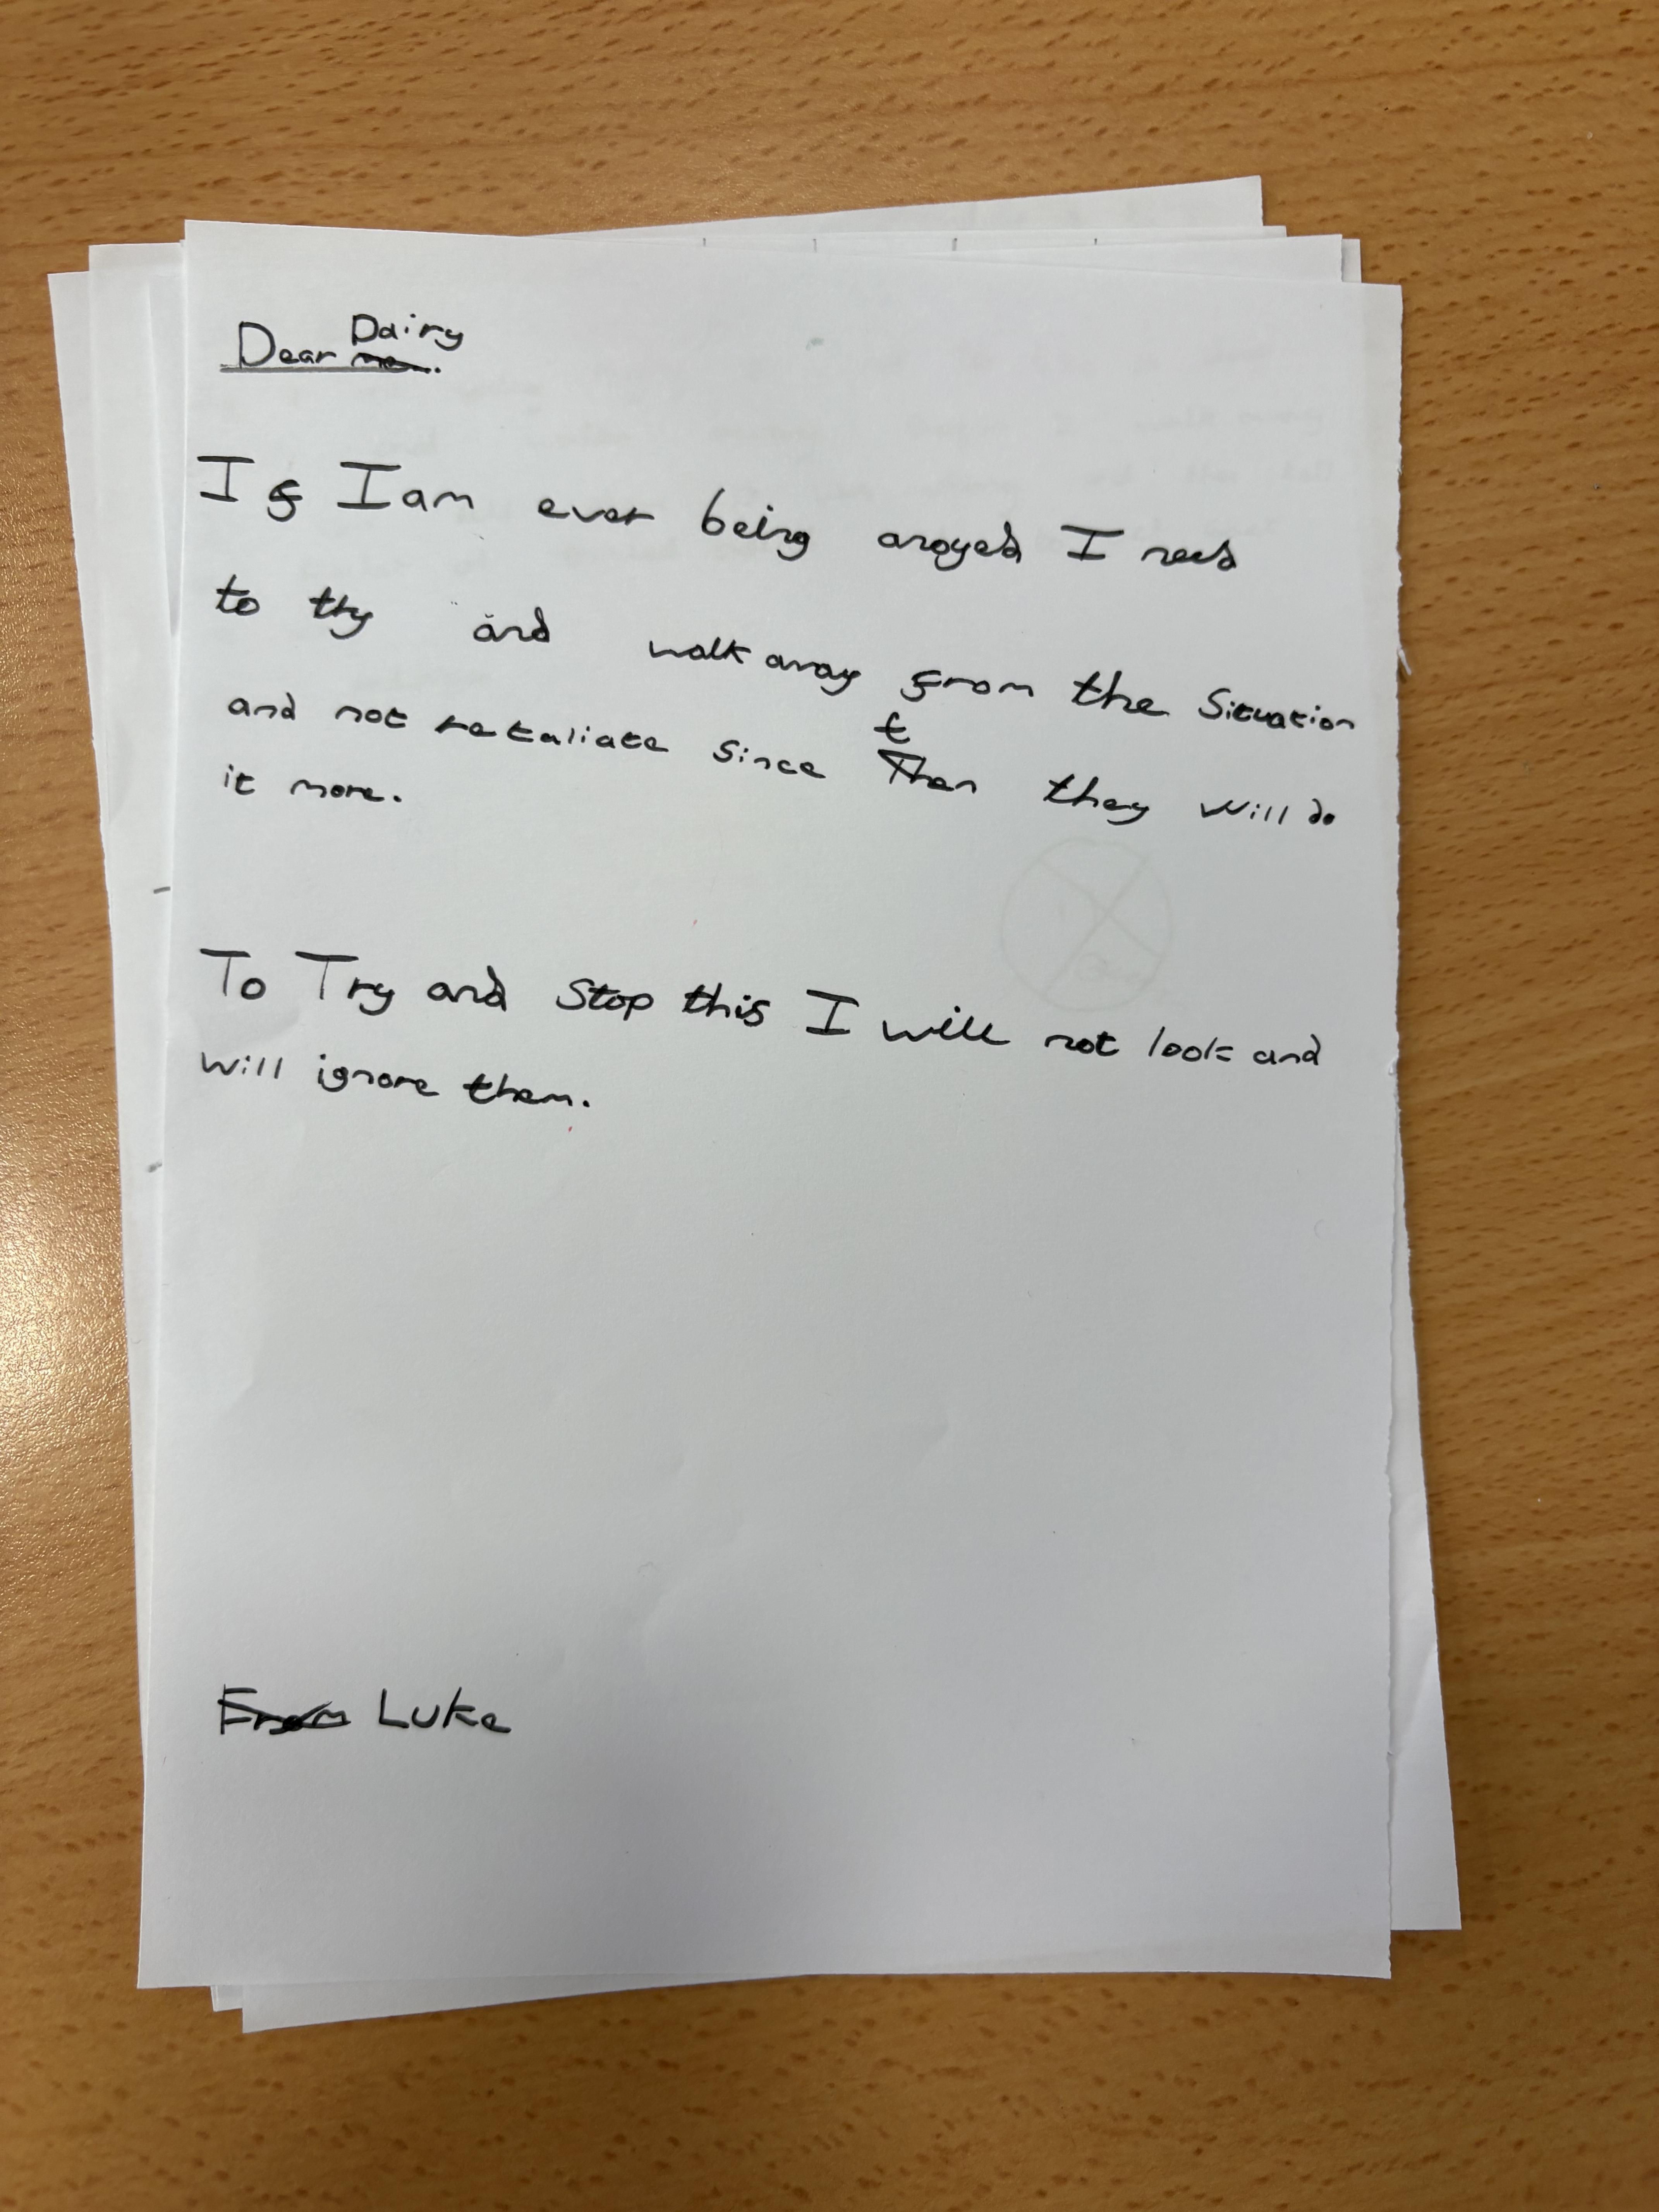 Dear me. Dairy
If I am ever being anoyed I need
to try and walk away from the Situation
and not retaliate Since Then they will do
it more.
To Try and Stop this I will not look and
will ignore them.
From Luke